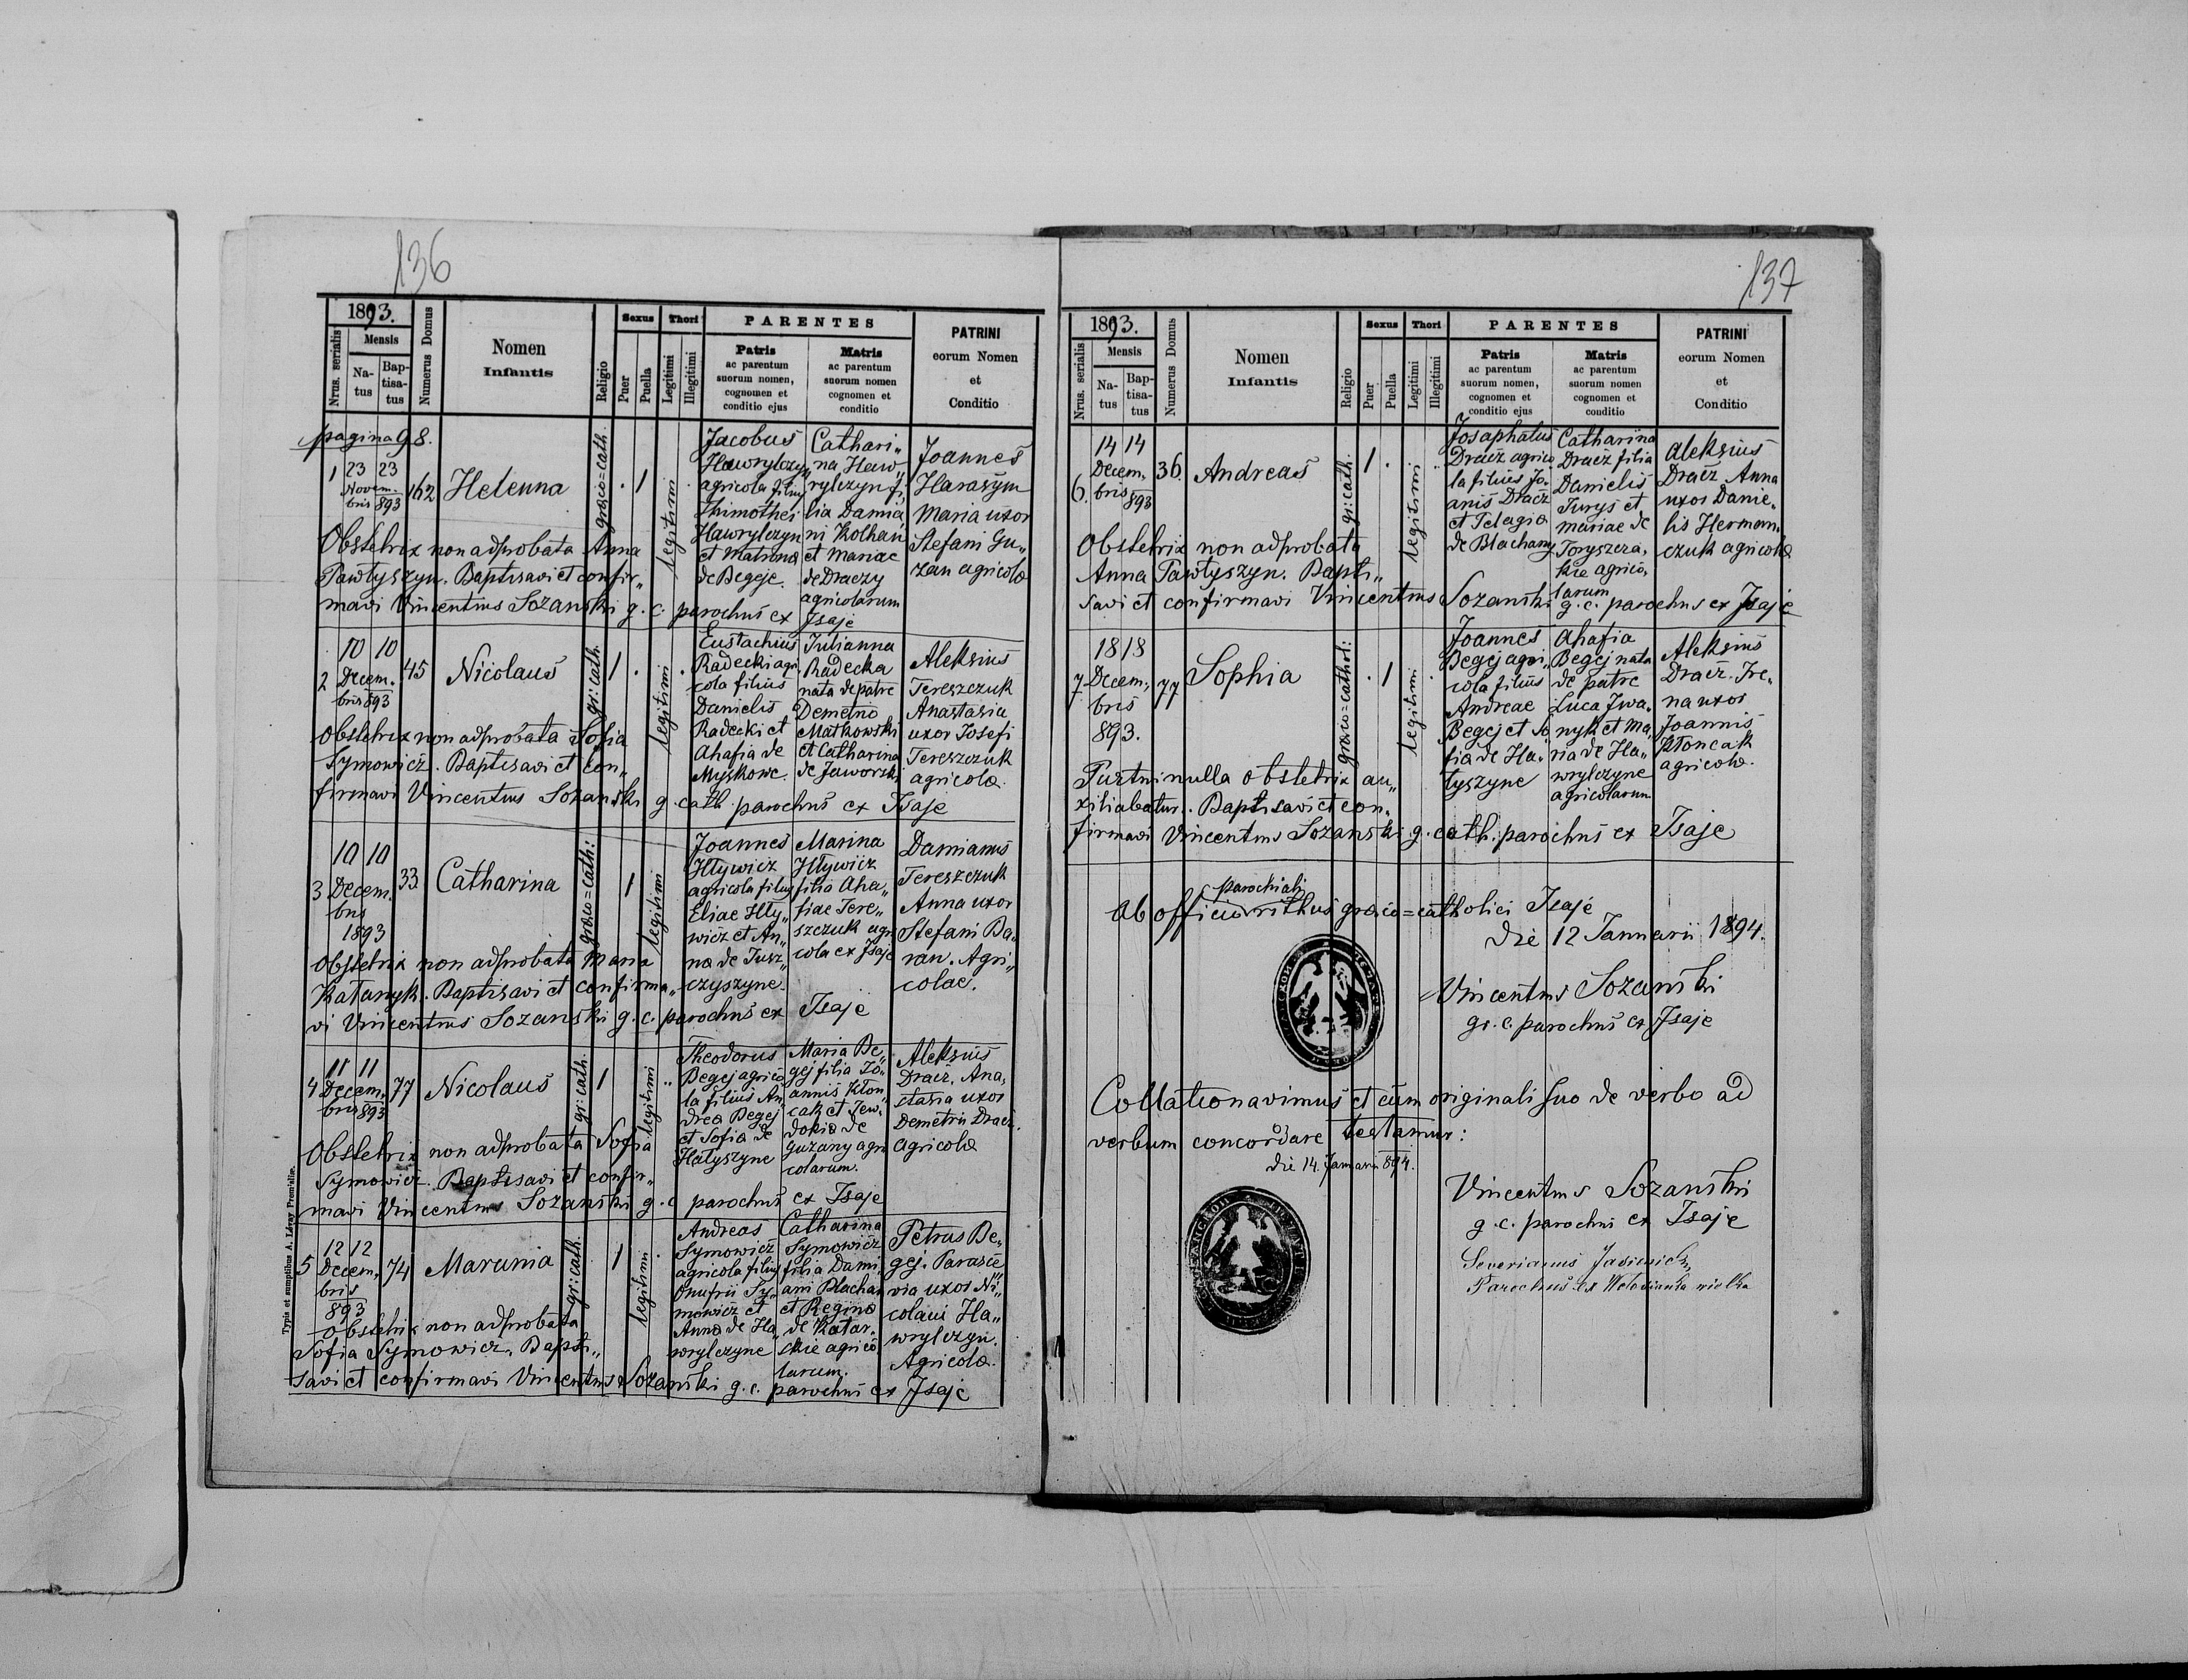 136
1893.
Nrus. serialis
Mensis
Na-
tus
Bap-
tisa-
tus
Numerus Domus
Nomen
Infantis
Religio
Sexus
Puer
Puella
Thori
Legitimi
Illegitimi
PARENTES
Patris
ac parentum
suorum nomen,
cognomen et
conditio ejus
Matris
ac parentum
suorum nomen
cognomen et
conditio
PATRINI
eorum Nomen
et
Conditio
pagina 98.
1
23 23
Novem.
bris 893
162
Helenna
graeco=cath.
. 1
legitimi
Jacobus
Hawrylczy„
agricola filius
Thimothei
Hawrylczyn
et Matrona
de Begeje.
Cathari„
na Haw„
rylczyn fi„
lia Damia„
ni Kolhan
et Mariae
de Draczy
agricolarum
Joannes
Harasym
Maria uxor
Stefani Gu„
zan agricola
Obstetrix non adprobata Anna
Pawłyszyn. Baptisavi et confir„
mavi Vincentius Sozanski g. c. parochus ex Isaje
2
10 10
Decem.
bris 893
45
Nicolaus
gr: cath.
1 .
legitimi
Eustachius
Radecki agri„
cola filius
Danielis
Radecki et
Ahafia de
Myskowc.
Julianna
Radecka
nata de patre
Demetrio
Matkowski
et Catharina
de Jaworski
Aleksius
Tereszczuk
Anastasia
uxor Josefi
Tereszczuk
agricola.
Obstetrix non adprobata Sofia
Symowicz. Baptisavi et con„
firmavi Vincentius Sozanski g. cath. parochus ex Isaje
3
10 10
Decem.
bris
1893
33.
Catharina
graeco=cath:
1
legitimi
Joannes
Hływicz
agricola filius
Eliae Hły„
wicz et An„
na de Jusz„
czyszyne.
Marina
Hływicz
filia Aha„
fiae Tere„
szczuk agri
cola ex Isaje
Damianus
Tereszczuk
Anna uxor
Stefani Ba„
ran. Agri„
colae.
Obstetrix non adprobata Maria
Katanyk. Baptisavi et confirma„
vi Vincentius Sozanski g. c. parochus ex Isaje
4
11 11
Decem.
bris 893
77
Nicolaus
gr: cath.
1
legitimi
Theodorus
Begej agrico
la filius An„
drea Begej
et Sofia de
Hałyszyne
Maria Be„
gej filia Jo„
annis Kłon„
cak et Jew„
dokia de
Guzany agri
colarum.
Aleksius
Dracz, Ana„
stasia uxor
Demetrii Dracz.
Agricola
Obstetrix non adprobata Sofia
Symowicz. Baptisavi et confir„
mavi Vincentius Sozanski g. c parochus ex Isaje
5
12 12
Decem.
bris
893
74
Marunia
gr: cath.
1
legitimi
Andreas
Symowicz
agricola filius
Onufrii Sy„
mowicz et
Anna de Ha„
wrylczyne
Catharina
Symowicz
filia Dami„
ani Blachan
et Regina
de Katar„
skie agrico
larum.
Petrus Be„
gej. Parasce„
via uxor Ni„
colaui Ha„
wrylczyn.
Agricola.
Obstetrix non adprobata
Sofia Symowicz. Bapti„
savi et confirmavi Vincentius Sozanski g. c. parochus ex Isaje
Typis et sumptibus A. Léray Premisliæ.
137
1893.
Nrus. serialis
Mensis
Na-
tus
Bap-
tisa-
tus
Numerus Domus
Nomen
Infantis
Religio
Sexus
Puer
Puella
Thori
Legitimi
Illegitimi
PARENTES
Patris
ac parentum
suorum nomen,
cognomen et
conditio ejus
Matris
ac parentum
suorum nomen
cognomen et
conditio
PATRINI
eorum Nomen
et
Conditio
6.
14 14
Decem.
bris 893
36.
Andreas
gr: cath.
1 .
legitimi
Josaphatus
Dracz agrico
la filius Jo„
anis Dracz
et Pelagia
de Blachany
Catharina
Dracz filia
Danielis
Jurys et
Mariae de
Toryszcza„
kie agrico„
larum
Aleksius
Dracz Anna
uxor Danie„
lis Herman„
czuk agricola
Obstetrix non adprobata
Anna Pawłyszyn. Bapti„
savi et confirmavi Vincentius Sozanski g. c. parochus ex Isaje
7
18 18
Decem„
bris
893.
77
Sophia
graeco=cathol:
. 1
legitimi.
Joannes
Begej agri„
cola filius
Andreae
Begej et So
fia de Ha„
łyszyne
Ahafia
Begej nata
de patre
Luca Iwa„
nyk et Ma„
ria de Ha„
wrylczyne
agricolarum
Aleksius
Dracz. Ire„
na uxor
Joannis
Kłoncak
agricola.
Partui nulla obstetrix au„
xiliabatur. Baptisavi et con„
firmavi Vincentius Sozanski g. cath. parochus ex Isaje
parochiali
Ab officio rithus graeco=catholici Isaje
die 12 Januarii 1894.
Vincentius Sozanski
gr. c. parochus ex Isaje
Collationavimus et cum originali suo de verbo ad
verbum concordare testamur:
die 14. Januarii 894.
Vincentius Sozanski
g. c. parochus ex Isaje
Severianus
Parochus ex